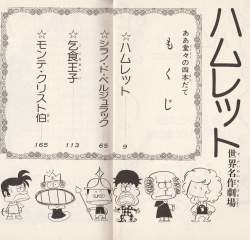 ハムレット
世界名作劇場
ああ堂々の四本だて
もくじ
☆ハムレット 9
☆シラノ・ド・ベルジュラック 65
☆乞食王子 113
☆モンテ・クリスト伯 165